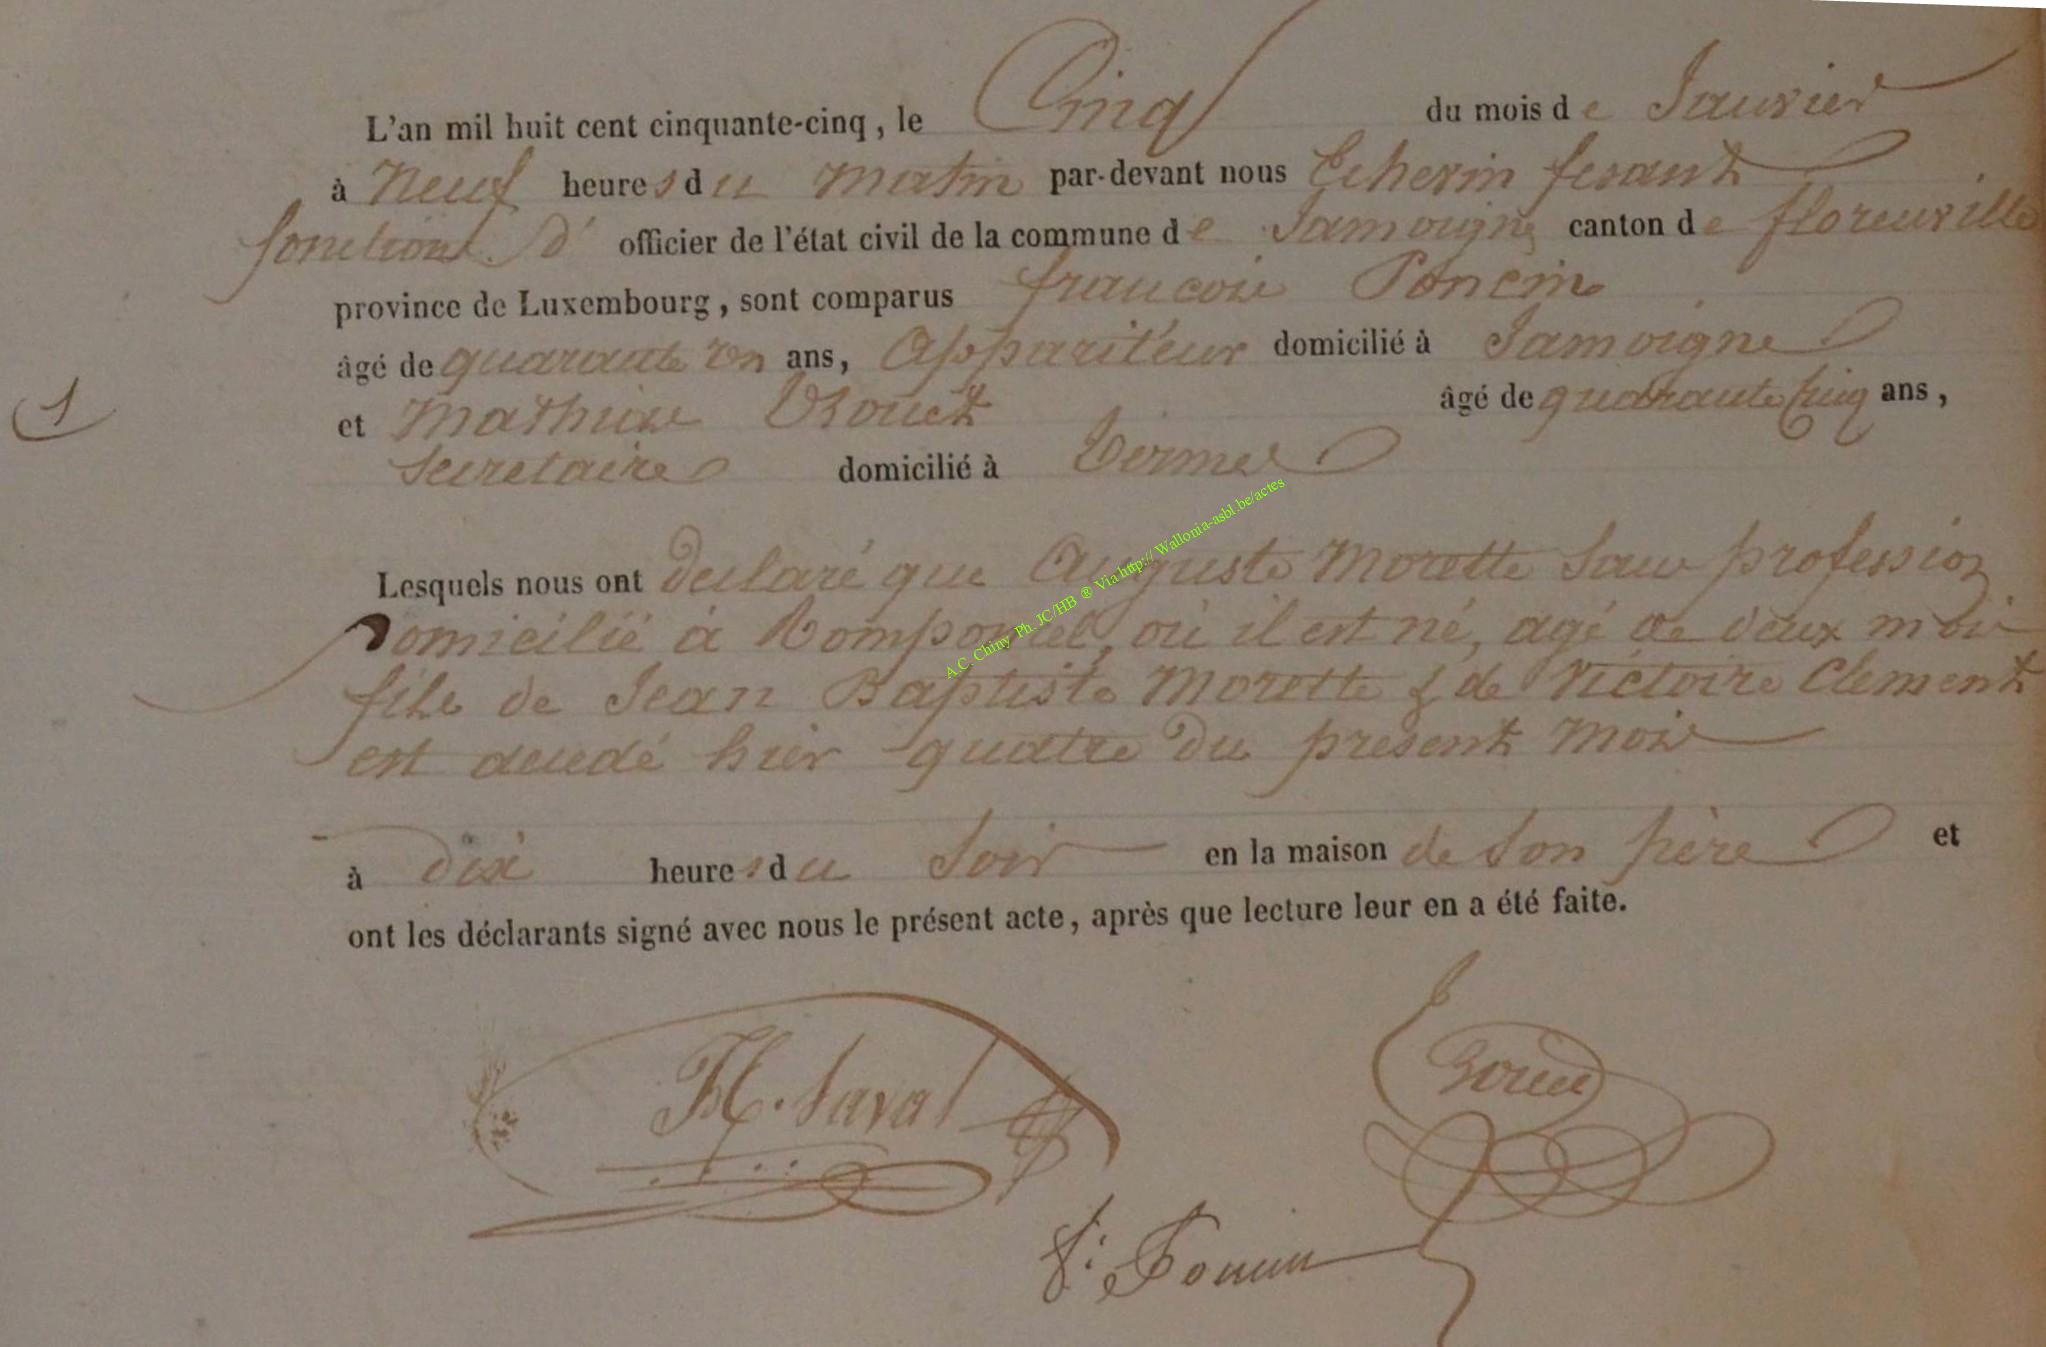 L'an mil huit cent cinquante-cinq, le Cinq du mois de Janvier
à Neuf heures du matin par-devant nous Echevin fesant
fonctions d' officier de l'état civil de la commune de Jamoigne canton de florenville
province de Luxembourg, sont comparus francois Poncin
âgé de quarante un ans, Appariteur domicilié à Jamoigne
1
et Mathieu âgé de quarante Cinq ans,
Secretaire domicilié à
Lesquels nous ont declaré que Auguste Morette Sans profession
domicilié à Romponcel, où il est né, agé de deux mois
fils de Jean Baptiste Morette & de Victoire Clement
est decedé hier quatre du present mois
à dix heures du Soir en la maison de Son père et
ont les déclarants signé avec nous le présent acte, après que lecture leur en a été faite.
H. Laval
f: Poncin
A.C. Chiny Ph. JC/HB ® Via http:// Wallonia-asbl.be/actes